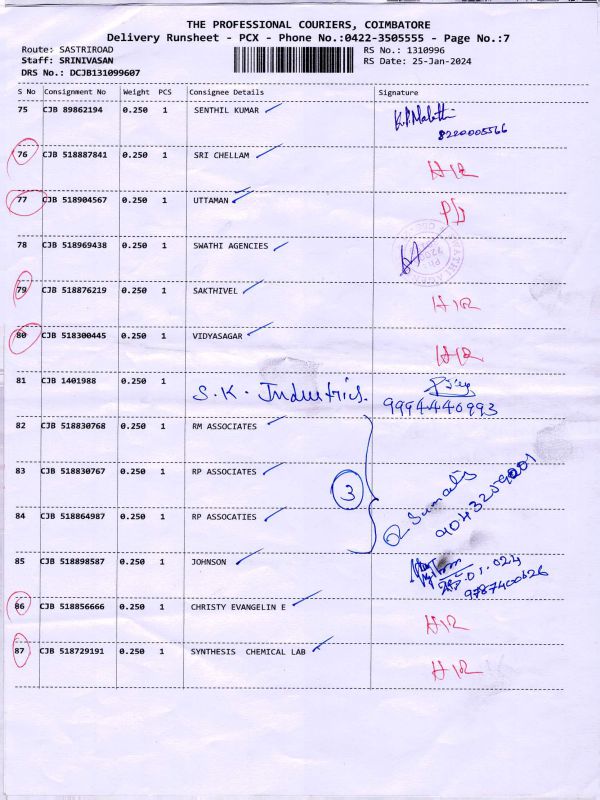 THE PROFESSIONAL COURIERS, COIMBATORE
Delivery Runsheet - PCX - Phone No.:0422-3505555 - Page No.:7
Route: SASTRIROAD RS No.: 1310996
Staff: SRINIVASAN RS Date: 25-Jan-2024
DRS No.: DCJB131099607
S No Consignment No Weight PCS Consignee Details Signature
75 CJB 89862194 0.250 1 SENTHIL KUMAR
8220005566
76 CJB 518887841 0.250 1 SRI CHELLAM
77 CJB 518904567 0.250 1 UTTAMAN
78 CJB 518969438 0.250 1 SWATHI AGENCIES
79 CJB 518876219 0.250 1 SAKTHIVEL
80 CJB 518300445 0.250 1 VIDYASAGAR
81 CJB 1401988 0.250 1 S.K. Industries.
9994440993
82 CJB 518830768 0.250 1 RM ASSOCIATES
83 CJB 518830767 0.250 1 RP ASSOCIATES
3
84 CJB 518864987 0.250 1 RP ASSOCATIES
85 CJB 518898587 0.250 1 JOHNSON
9787400626
86 CJB 518856666 0.250 1 CHRISTY EVANGELIN E
87 CJB 518729191 0.250 1 SYNTHESIS CHEMICAL LAB